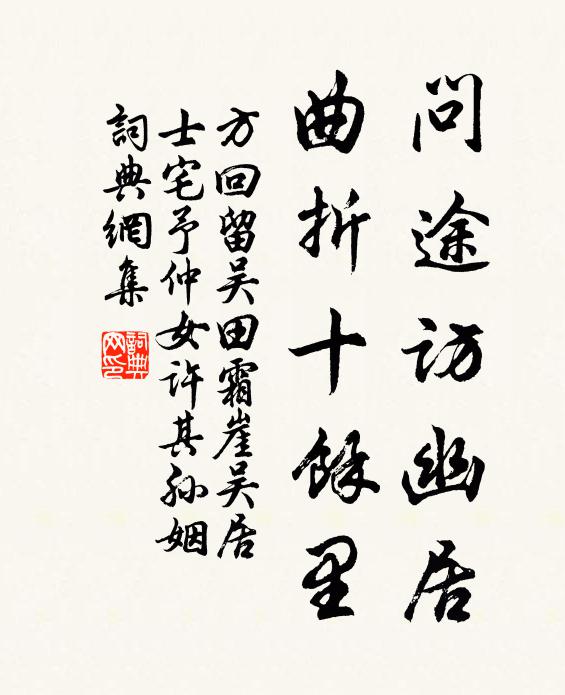 問途訪幽居
曲折十餘里
方回留吴田霜崖吴居
士宅予仲女許其孙姻
詞典網集
詞典网印